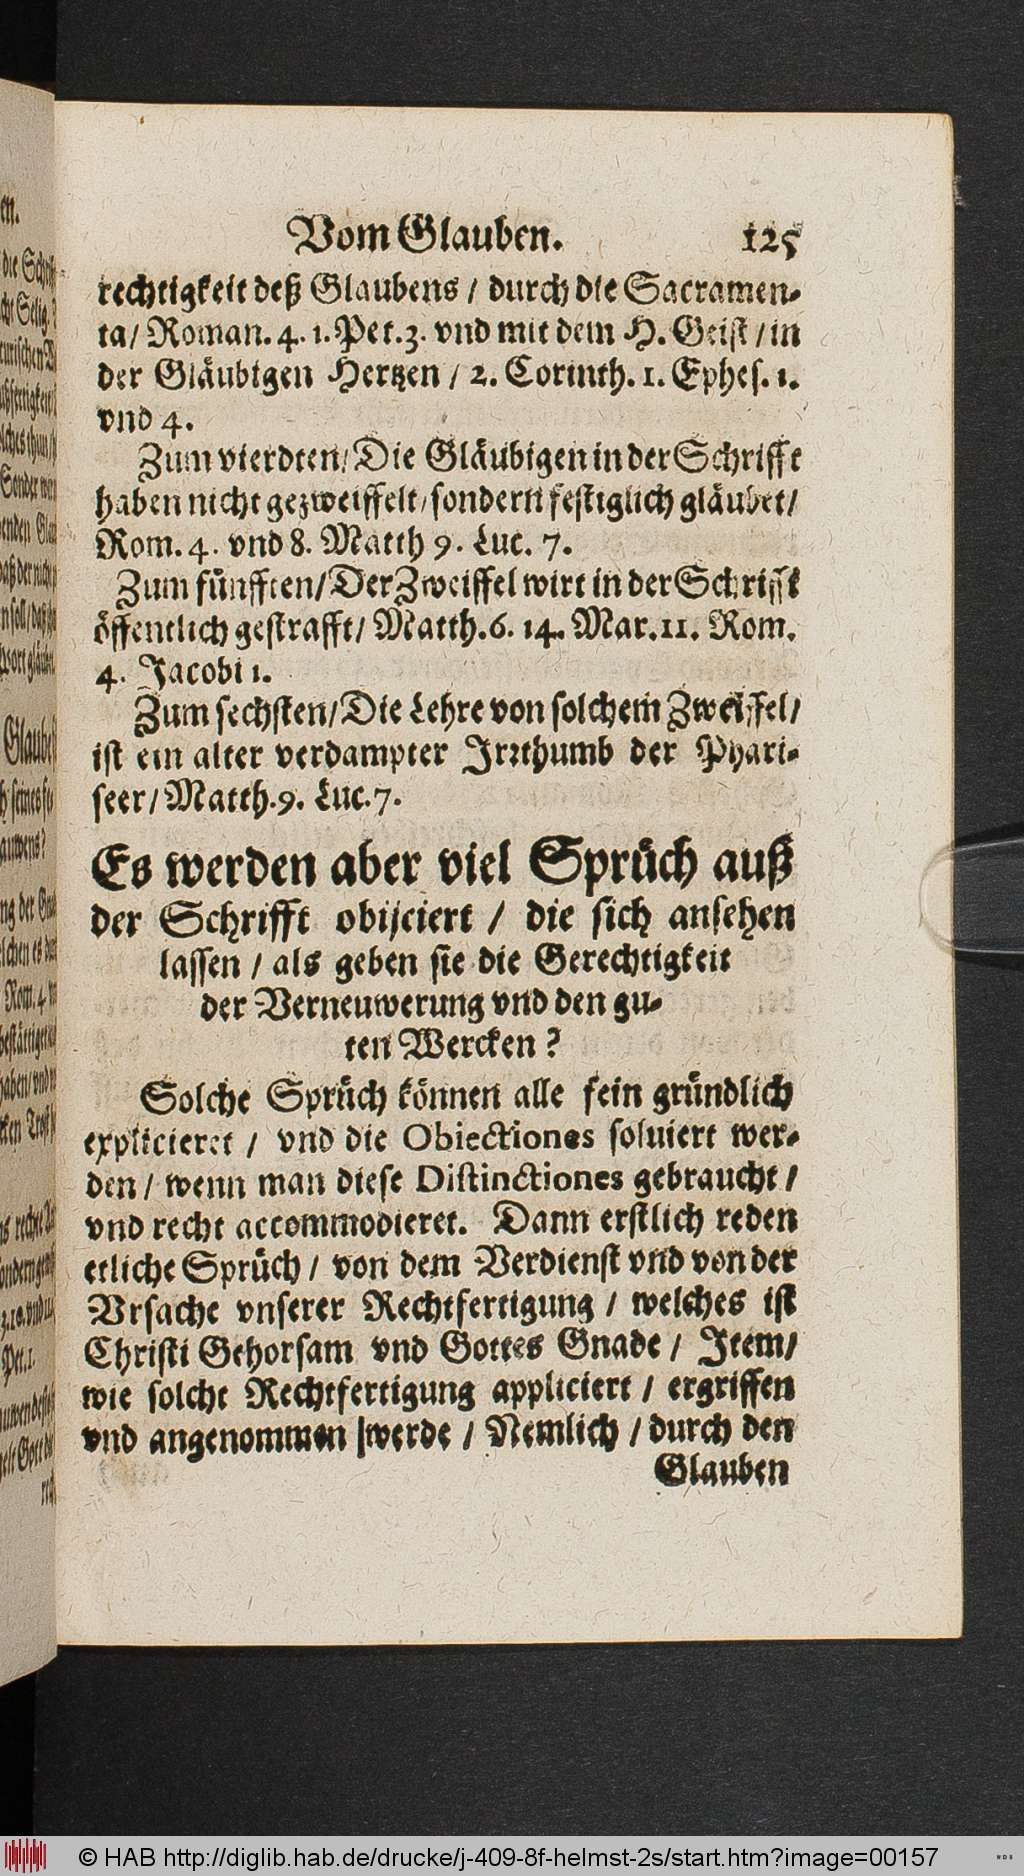 Vom Glauben. 125
rechtigkeit deß Glaubens / durch die Sacramen-
ta / Roman. 4. 1. Pet. 3. vnd mit dem H. Geist / in
der Gläubigen Hertzen / 2. Corinth. 1. Ephes. 1.
vnd 4.
Zum vierdten / Die Gläubigen in der Schrifft
haben nicht gezweiffelt / sondern festiglich gläubet /
Rom. 4. vnd 8. Matth 9. Luc. 7.
Zum fünfften / Der Zweiffel wirt in der Schrifft
öffentlich gestrafft / Matth. 6. 14. Mar. 11. Rom.
4. Jacobi 1.
Zum sechsten / Die Lehre von solchem Zweiffel /
ist ein alter verdampter Irrthumb der Phari-
seer / Matth. 9. Luc. 7.
Es werden aber viel Sprüch auß
der Schrifft obijciert / die sich ansehen
lassen / als geben sie die Gerechtigkeit
der Verneuwerung vnd den gu-
ten Wercken ?
Solche Sprüch können alle fein gründlich
explicieret / vnd die Obiectiones soluiert wer-
den / wenn man diese Distinctiones gebraucht /
vnd recht accommodieret. Dann erstlich reden
etliche Sprüch / von dem Verdienst vnd von der
Vrsache vnserer Rechtfertigung / welches ist
Christi Gehorsam vnd Gottes Gnade / Item /
wie solche Rechtfertigung appliciert / ergriffen
vnd angenommen werde / Nemlich / durch den
Glauben
© HAB http://diglib.hab.de/drucke/j-409-8f-helmst-2s/start.htm?image=00157